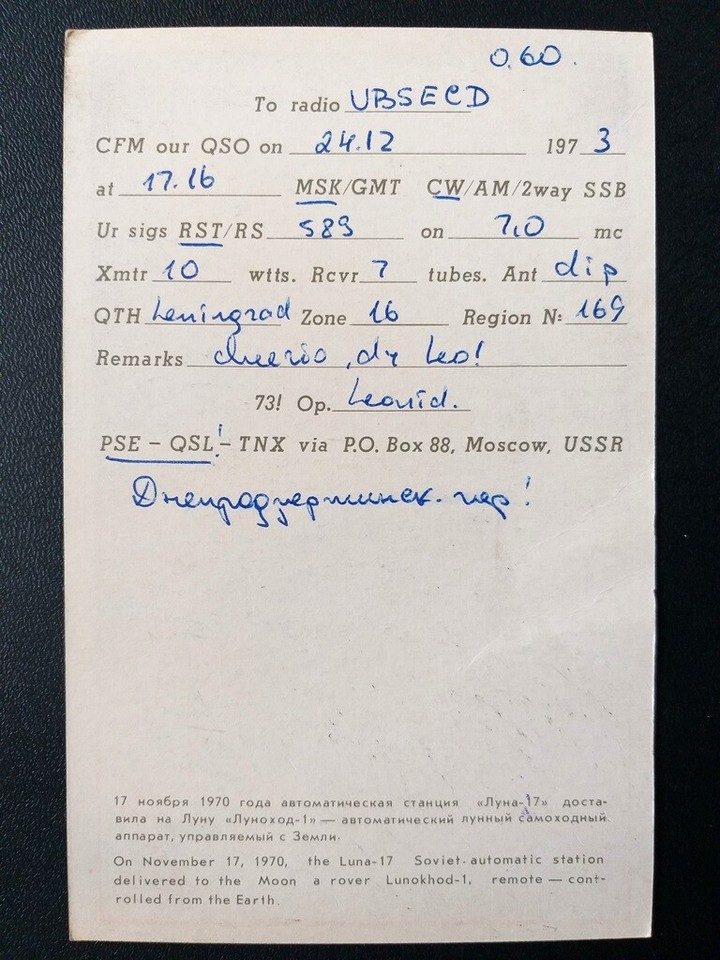 0.60.
To radio UB5ECD
CFM our QSO on 24.12 1973
at 17.16 MSK/GMT CW/AM/2way SSB
Ur sigs RST/RS 589 on 7,0 mc
Xmtr 10 wtts. Rcvr 7 tubes. Ant dip
QTH Leningrad Zone 16 Region N: 169
Remarks cheerio, dr Leo!
73! Op. Leonid.
PSE – QSL! – TNX via P.O. Box 88, Moscow, USSR
Днепродзержинск.
17 ноября 1970 года автоматическая станция «Луна-17» доста-
вила на Луну «Луноход-1» — автоматический лунный самоходный
аппарат, управляемый с Земли.
On November 17, 1970, the Luna-17 Soviet automatic station
delivered to the Moon a rover Lunokhod-1, remote — cont-
rolled from the Earth.